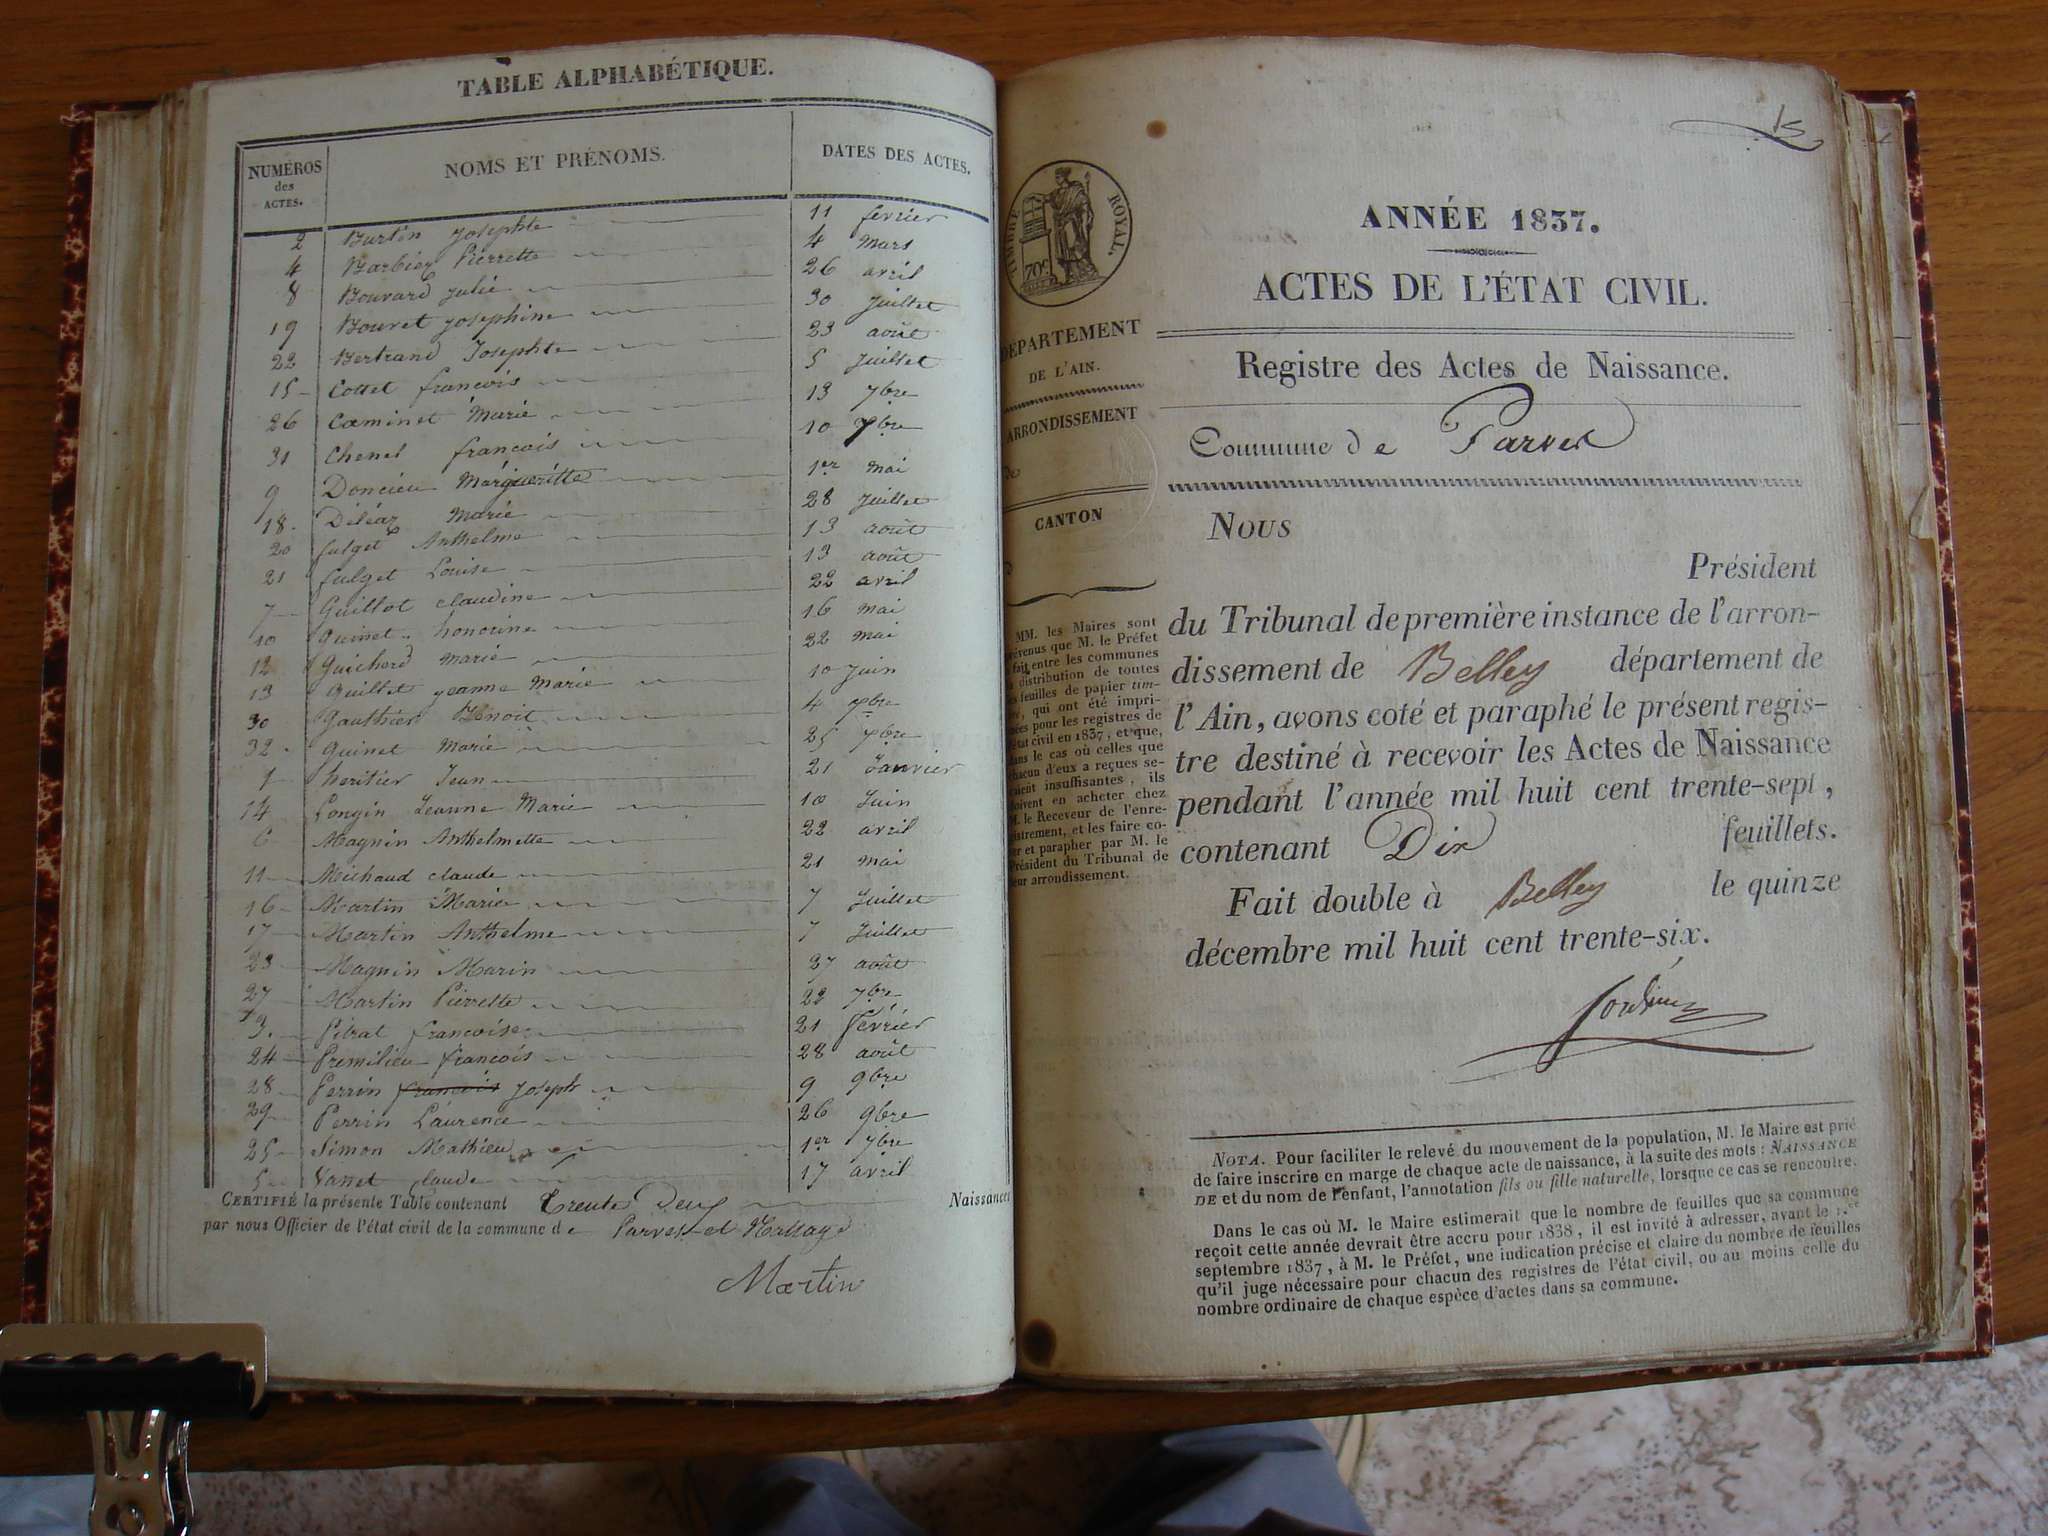 TABLE ALPHABÉTIQUE.
NUMÉROS des ACTES. NOMS ET PRÉNOMS. DATES DES ACTES.
2 Burtin Josephte 11 février
4 Barbier Pierrette 4 mars
8 Bouvard Julie 26 avril
19 Bouvet Josephine 30 Juillet
22 Bertrand Josephte 23 août
15 Cottet françois 5 Juillet
26 Caminet Marie 13 7bre
31 Chenel françois 10
9 Doncieu Marguéritte 1er mai
18. Déléaz Marie 28 Juillet
20 fulget Anthelme 13 août
21 fulget Louise 13 août
7 Guillot claudine 22 avril
10 Guinet honorine 16 mai
12 Guicherd marie 22 mai
13 Guillet jeanne Marie 10 Juin
30 Gauthier Benoit 4
32 Guinet Marie 25
1 héritier Jean 21 Janvier
14 Longin Jeanne Marie 10 Juin
6 Magnin Anthelmette 22 avril
11 Michaud claude 21 mai
16 Martin Marie 7 Juillet
17 Martin Anthelme 7 Juillet
23 Magnin Marin 27 août
27 Martin Pierrette 22 7bre
3. Pitrat françoise 21 février
24 Premilieu françois 28 août
28 Perrin françois Joseph 9 9bre
29 Perrin Laurence 26 9bre
25 Simon Mathieu 1er 7bre
5 Vasset claude 17 avril
CERTIFIÉ la présente Table contenant Trente Deux Naissances
par nous Officier de l'état civil de la commune de Parves et
Martin
15
TIMBRE ROYAL.
70c
ANNÉE 1837.
ACTES DE L'ÉTAT CIVIL.
DÉPARTEMENT
DE L'AIN.
Registre des Actes de Naissance.
ARRONDISSEMENT
Commune de Parves
CANTON
MM. les Maires sont
prévenus que M. le Préfet
fait entre les communes
la distribution de toutes
les feuilles de papier tim-
bré, qui ont été impri-
mées pour les registres de
l'état civil en 1837, et que,
dans le cas où celles que
chacun d'eux a reçues se-
raient insuffisantes, ils
doivent en acheter chez
M. le Receveur de l'enre-
gistrement, et les faire co-
ter et parapher par M. le
Président du Tribunal de
leur arrondissement.
NOUS
Président
du Tribunal de première instance de l'arron-
dissement de Belley département de
l'Ain, avons coté et paraphé le présent regis-
tre destiné à recevoir les Actes de Naissance
pendant l'année mil huit cent trente-sept,
contenant Dix feuillets.
Fait double à Belley le quinze
décembre mil huit cent trente-six.
NOTA. Pour faciliter le relevé du mouvement de la population, M. le Maire est prié
de faire inscrire en marge de chaque acte de naissance, à la suite des mots : NAISSANCE
DE et du nom de l'enfant, l'annotation fils ou fille naturelle, lorsque ce cas se rencontre.
Dans le cas où M. le Maire estimerait que le nombre de feuilles que sa commune
reçoit cette année devrait être accru pour 1838, il est invité à adresser, avant le 1.er
septembre 1837, à M. le Préfet, une indication précise et claire du nombre de feuilles
qu'il juge nécessaire pour chacun des registres de l'état civil, ou au moins celle du
nombre ordinaire de chaque espèce d'actes dans sa commune.